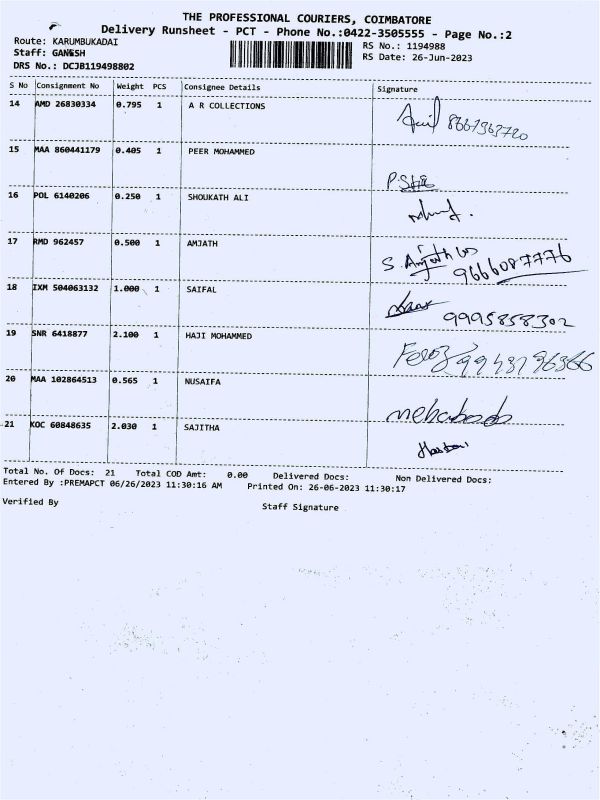 THE PROFESSIONAL COURIERS, COIMBATORE
Delivery Runsheet - PCT - Phone No.:0422-3505555 - Page No.:2
Route: KARUMBUKADAI
Staff: GANESH
DRS No.: DCJB119498802
RS No.: 1194988
RS Date: 26-Jun-2023
S No Consignment No Weight PCS Consignee Details Signature
14 AMD 26830334 0.795 1 A R COLLECTIONS
15 MAA 860441179 0.405 1 PEER MOHAMMED
16 POL 6140206 0.250 1 SHOUKATH ALI
17 RMD 962457 0.500 1 AMJATH S. Amjath 9666087776
18 IXM 504063132 1.000 1 SAIFAL 9995858302
19 SNR 6418877 2.100 1 HAJI MOHAMMED Feroz
20 MAA 102864513 0.565 1 NUSAIFA
21 KOC 60848635 2.030 1 SAJITHA
Total No. Of Docs: 21 Total COD Amt: 0.00 Delivered Docs: Non Delivered Docs:
Entered By :PREMAPCT 06/26/2023 11:30:16 AM Printed On: 26-06-2023 11:30:17
Verified By Staff Signature